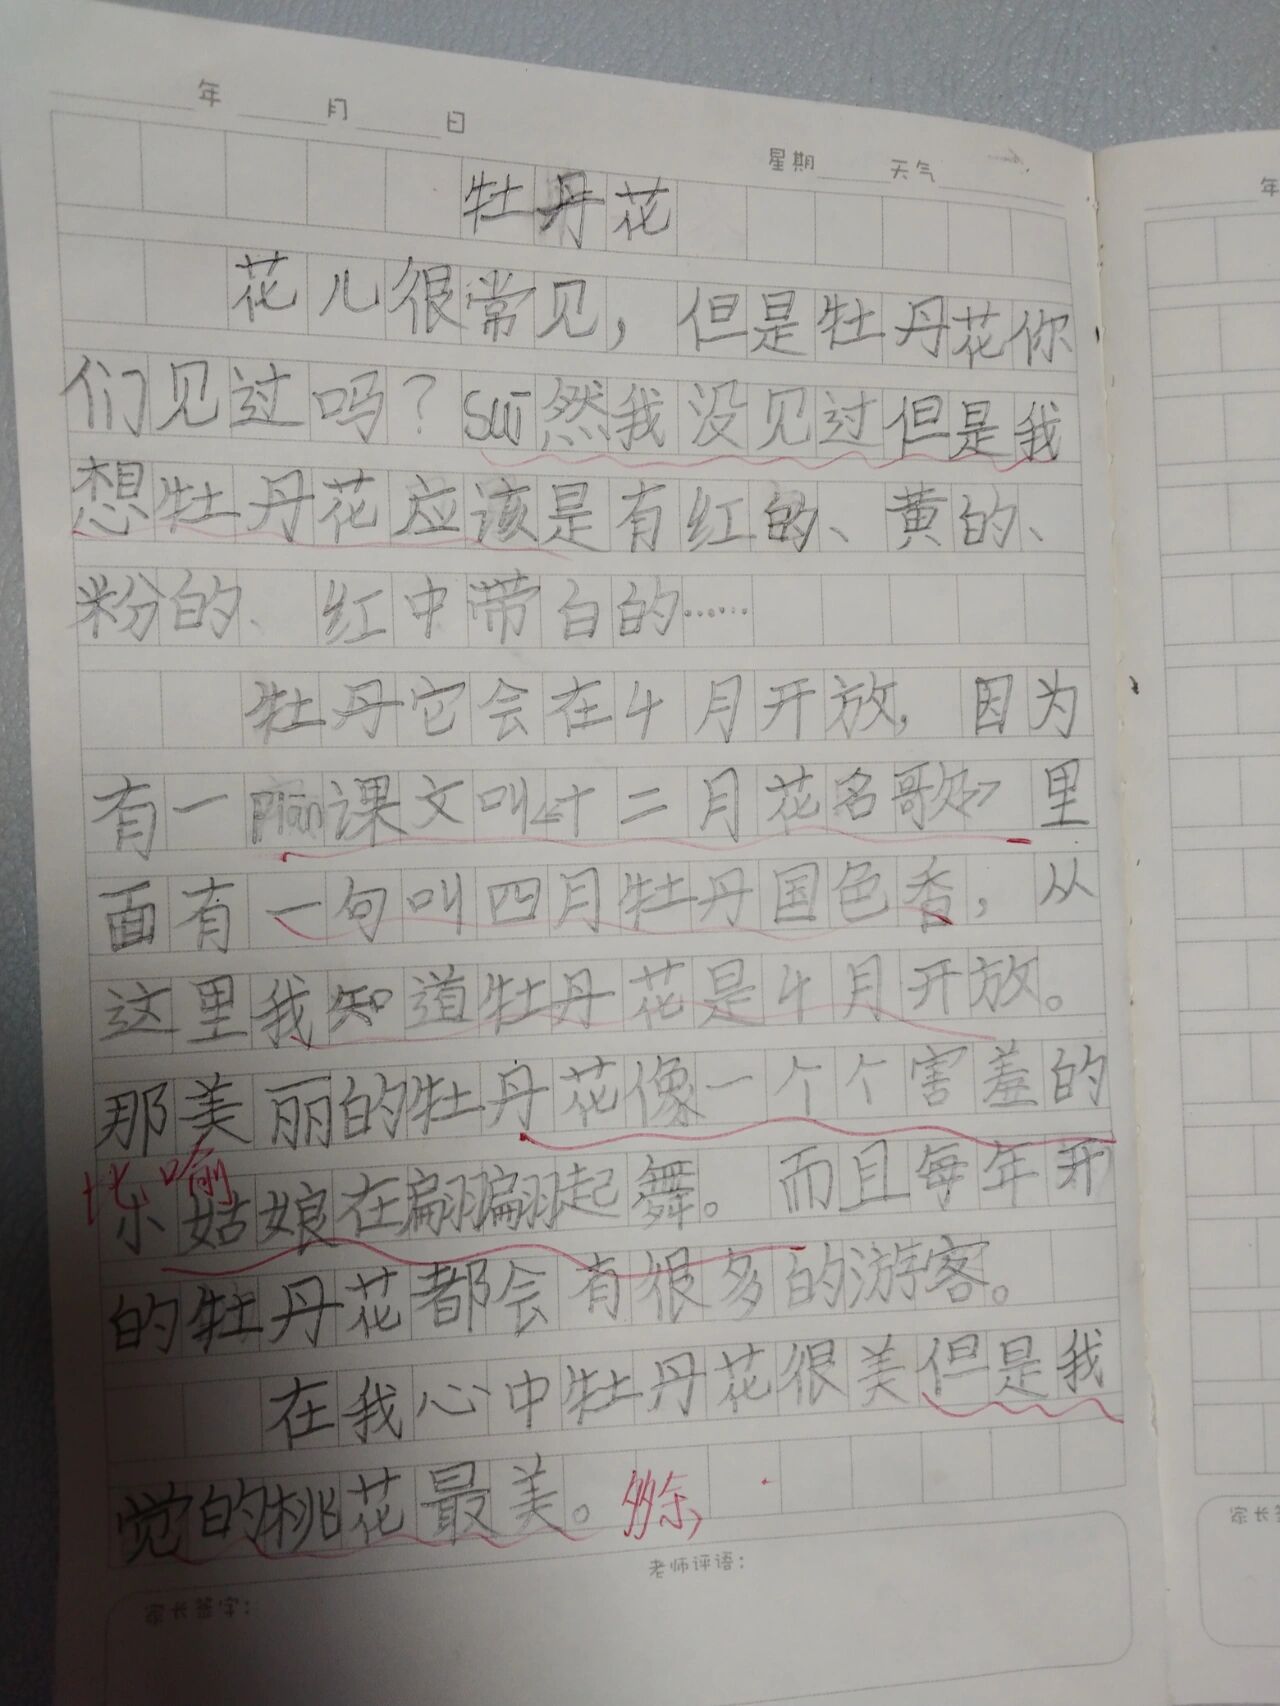 年 月 日
星期 天气
牡丹花
花儿很常见，但是牡丹花你
们见过吗？suī然我没见过但是我
想牡丹花应该是有红的、黄的、
粉的、红中带白的……
牡丹它会在4月开放，因为
有一piān课文叫《十二月花名歌》里
面有一句叫四月牡丹国色香，从
这里我知道牡丹花是4月开放。
那美丽的牡丹花像一个个害羞的
比喻
小姑娘在翩翩起舞。而且每年开
的牡丹花都会有很多的游客。
在我心中牡丹花很美但是我
觉的桃花最美。多余
老师评语：
家长签字：
年
家长签